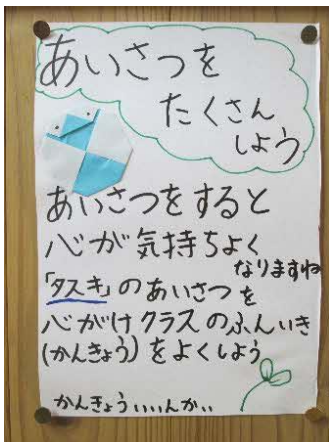 あいさつを
たくさん
しよう
あいさつをすると
心が気持ちよく
なりますね
「タスキ」のあいさつを
心がけクラスのふんいき
(かんきょう)をよくしよう
かんきょういいんか、、